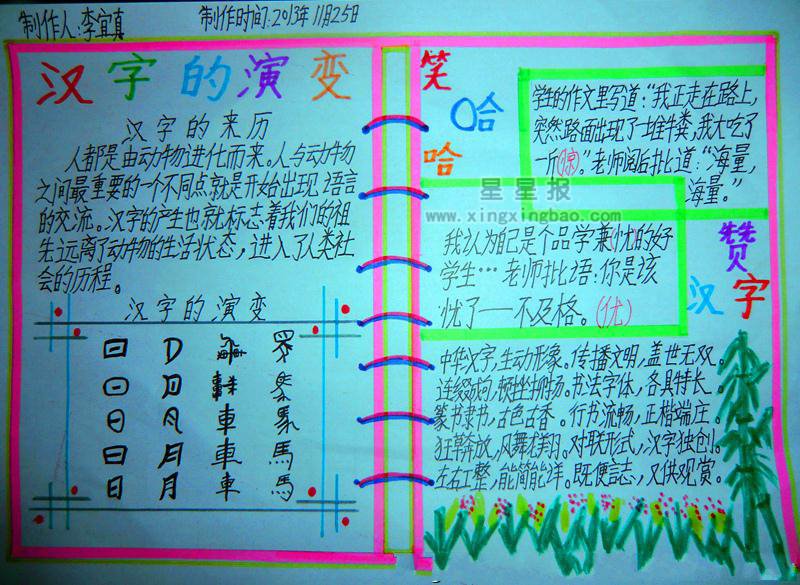 制作人:李宜真
制作时间:2013年11月25日
汉字的演变
汉字的来历
人都是由动物进化而来。人与动物
之间最重要的一个不同点就是开始出现语言
的交流。汉字的产生也就标志着我们的祖
先远离了动物的生活状态,进入了人类社
会的历程。
汉字的演变
日 月 車 馬
笑
哈
哈
学生的作文里写道:“我正走在路上,
突然路面出现了一堆牛粪,我大吃了
一斤(惊)。”老师阅后批道:“海量,
海量。”
星星报
www.xingxingbao.com
我认为自己是个品学兼忧的好
学生…老师批语:你是该
忧了——不及格。(优)
赞
汉字
中华汉字,生动形象。传播文明,盖世无双。
连缀成句,顿挫抑扬。书法字体,各具特长。
篆书隶书,古色古香。行书流畅,正楷端庄。
狂草奔放,凤舞龙翔。对联形式,汉字独创。
左右工整,能简能详。既便言志,又供观赏。